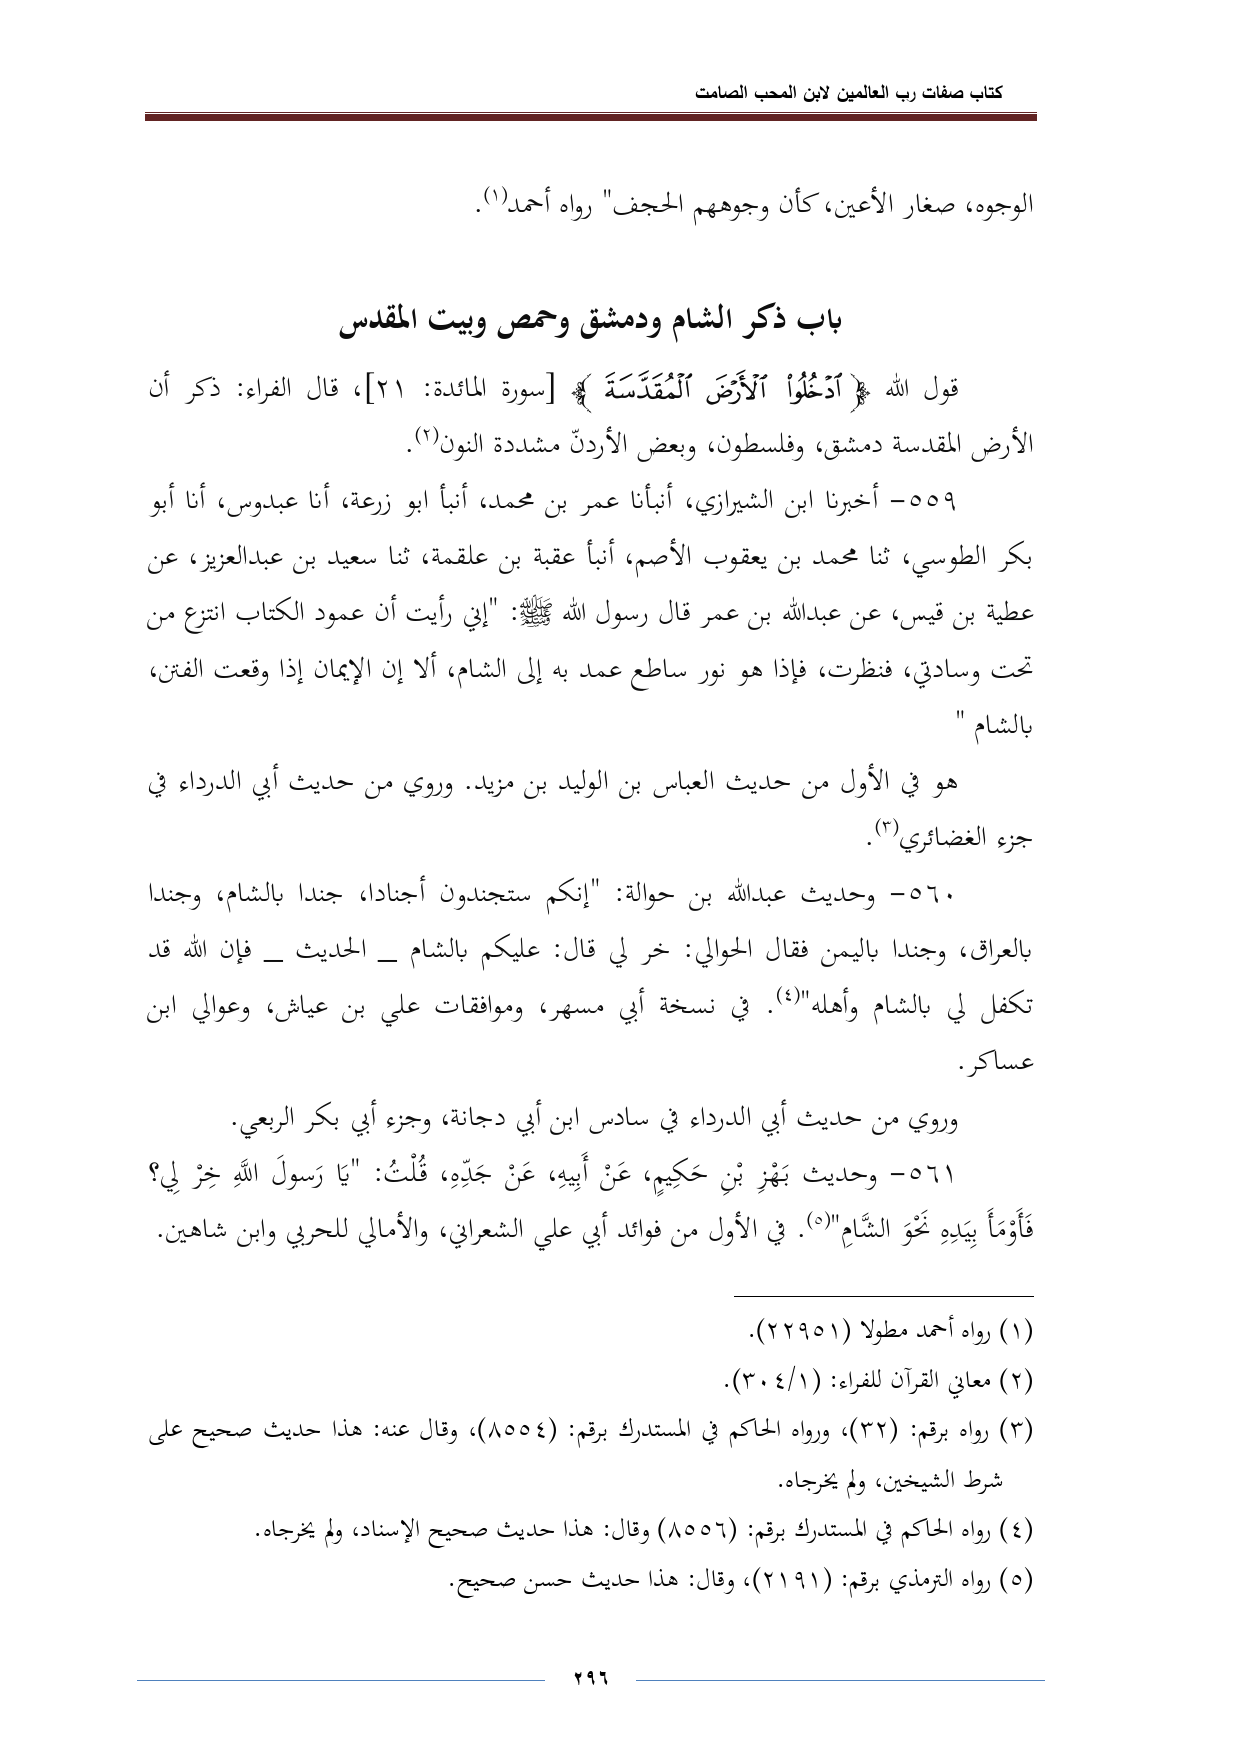 كتاب صفات رب العالمين لابن المحب الصامت
الوجوه، صغار الأعين، كأن وجوههم الحجف" رواه أحمد(١).
باب ذكر الشام ودمشق وحمص وبيت المقدس
قول الله ﴿ ٱدۡخُلُواْ ٱلۡأَرۡضَ ٱلۡمُقَدَّسَةَ ﴾ [سورة المائدة: ٢١]، قال الفراء: ذكر أن
الأرض المقدسة دمشق، وفلسطون، وبعض الأردنّ مشددة النون(٢).
٥٥٩- أخبرنا ابن الشيرازي، أنبأنا عمر بن محمد، أنبأ ابو زرعة، أنا عبدوس، أنا أبو
بكر الطوسي، ثنا محمد بن يعقوب الأصم، أنبأ عقبة بن علقمة، ثنا سعيد بن عبدالعزيز، عن
عطية بن قيس، عن عبدالله بن عمر قال رسول الله ﷺ: "إني رأيت أن عمود الكتاب انتزع من
تحت وسادتي، فنظرت، فإذا هو نور ساطع عمد به إلى الشام، ألا إن الإيمان إذا وقعت الفتن،
بالشام "
هو في الأول من حديث العباس بن الوليد بن مزيد. وروي من حديث أبي الدرداء في
جزء الغضائري(٣).
٥٦٠- وحديث عبدالله بن حوالة: "إنكم ستجندون أجنادا، جندا بالشام، وجندا
بالعراق، وجندا باليمن فقال الحوالي: خر لي قال: عليكم بالشام _ الحديث _ فإن الله قد
تكفل لي بالشام وأهله"(٤). في نسخة أبي مسهر، وموافقات علي بن عياش، وعوالي ابن
عساكر.
وروي من حديث أبي الدرداء في سادس ابن أبي دجانة، وجزء أبي بكر الربعي.
٥٦١- وحديث بَهْزِ بْنِ حَكِيمٍ، عَنْ أَبِيهِ، عَنْ جَدِّهِ، قُلْتُ: "يَا رَسولَ اللَّهِ خِرْ لِي؟
فَأَوْمَأَ بِيَدِهِ نَحْوَ الشَّامِ"(٥). في الأول من فوائد أبي علي الشعراني، والأمالي للحربي وابن شاهين.
(١) رواه أحمد مطولا (٢٢٩٥١).
(٢) معاني القرآن للفراء: (٣٠٤/١).
(٣) رواه برقم: (٣٢)، ورواه الحاكم في المستدرك برقم: (٨٥٥٤)، وقال عنه: هذا حديث صحيح على
شرط الشيخين، ولم يخرجاه.
(٤) رواه الحاكم في المستدرك برقم: (٨٥٥٦) وقال: هذا حديث صحيح الإسناد، ولم يخرجاه.
(٥) رواه الترمذي برقم: (٢١٩١)، وقال: هذا حديث حسن صحيح.
٢٩٦